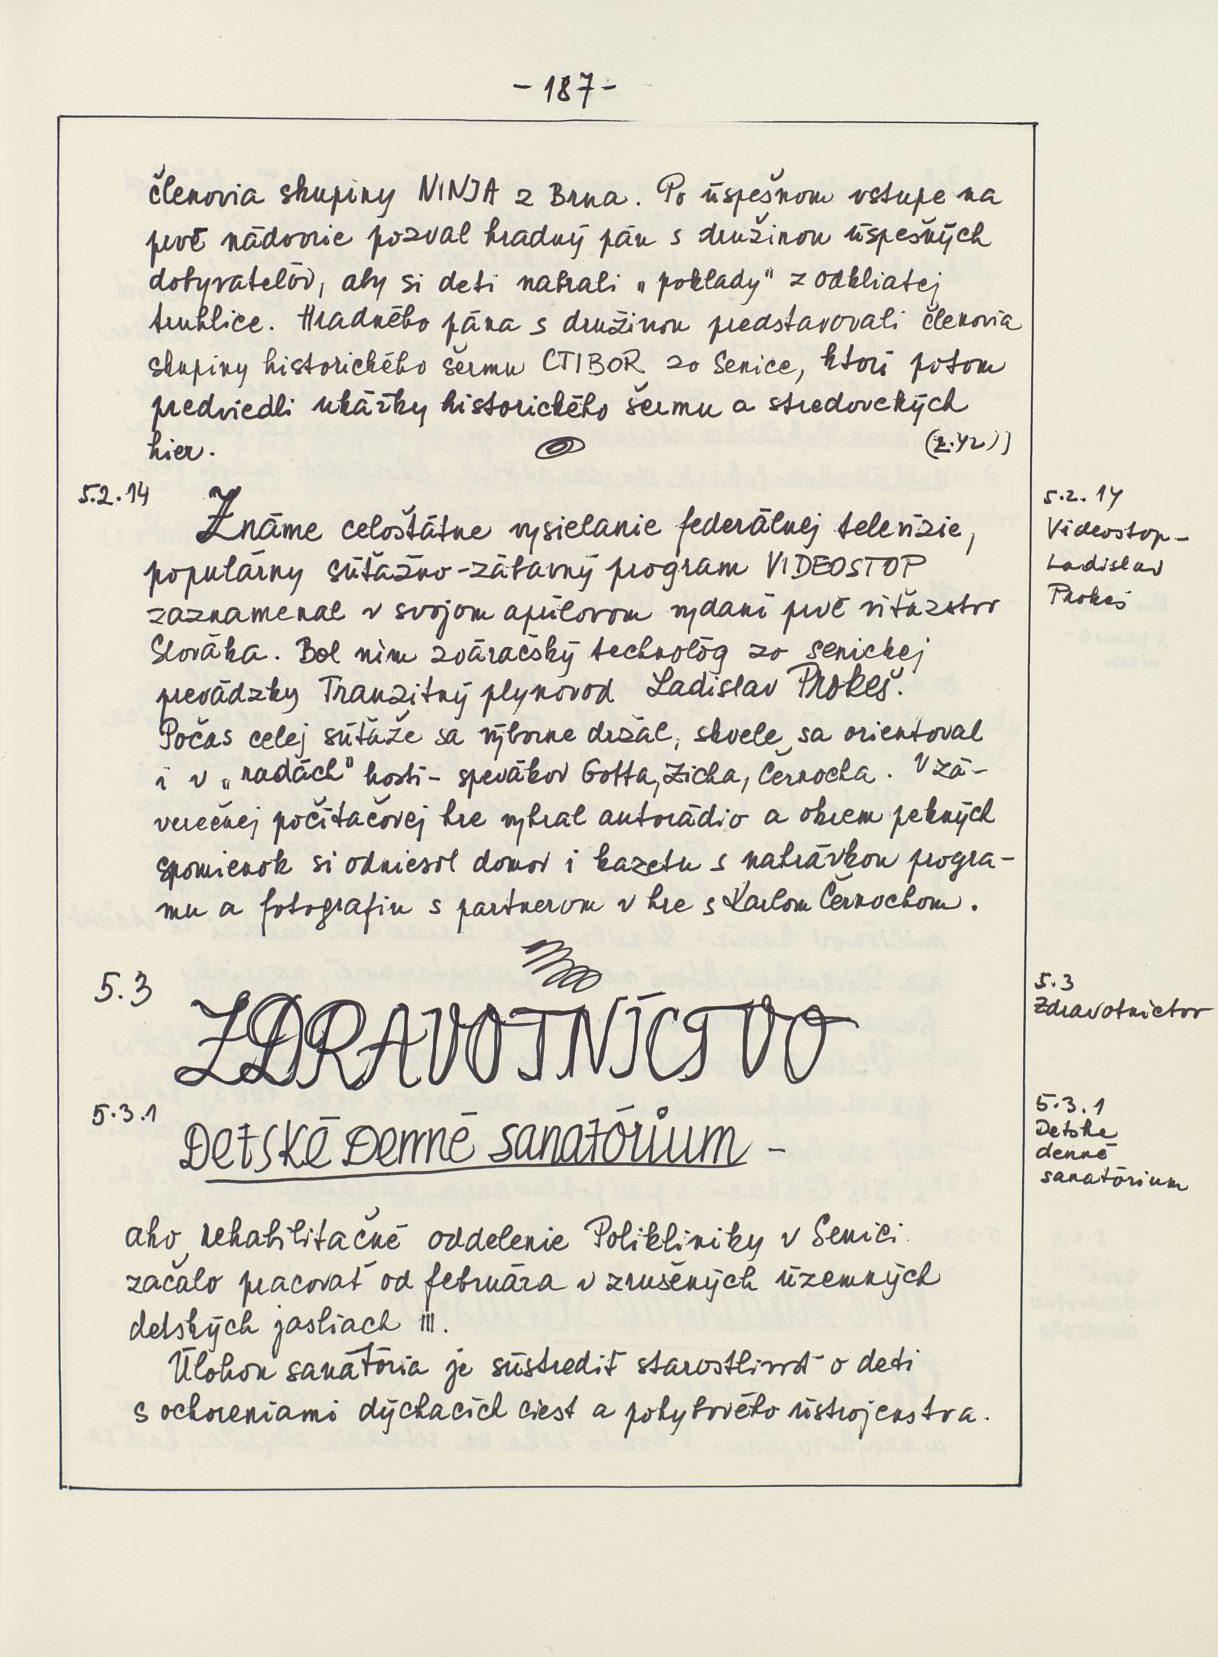 - 187 -
členovia skupiny NINJA z Brna. Po úspešnom vstupe na
prvé nádvorie pozval hradný pán s družinou úspešných
dobyvateľov, aby si deti nabrali „poklady" z odkliatej
truhlice. Hradného pána s družinou predstavovali členovia
skupiny historického šermu CTIBOR zo Senice, ktorí potom
predviedli ukážky historického šermu a stredovekých
hier.
5.2.14
Známe celoštátne vysielanie federálnej televízie,
populárny súťažno-zábavný program VIDEOSTOP
zaznamenal v svojom apúlovom vydaní prvé víťazstvo
Slováka. Bol ním zváračský technológ zo senickej
prevádzky Tranzitný plynovod Ladislav Prokeš.
Počas celej súťaže sa výborne držal, skvele sa orientoval
i v „radách" hostí - spevákov Gotta, Zicha, Černocha. V zá-
verečnej počítačovej hre vyhral autorádio a okrem pekných
spomienok si odniesol domov i kazetu s nahrávkou progra-
mu a fotografiu s partnerom v hre s Karlom Černochom.
5.2.14
Videostop-
Ladislav
Prokeš
5.3
ZDRAVOTNÍCTVO
5.3
Zdravotníctvo
5.3.1
Detské denné sanatórium -
5.3.1
Detské
denné
sanatórium
ako rehabilitačné oddelenie Polikliniky v Senici
začalo pracovať od februára v zrušených územných
detských jasliach III.
Úlohou sanatória je sústrediť starostlivosť o deti
s ochoreniami dýchacích ciest a pohybového ústrojenstva.